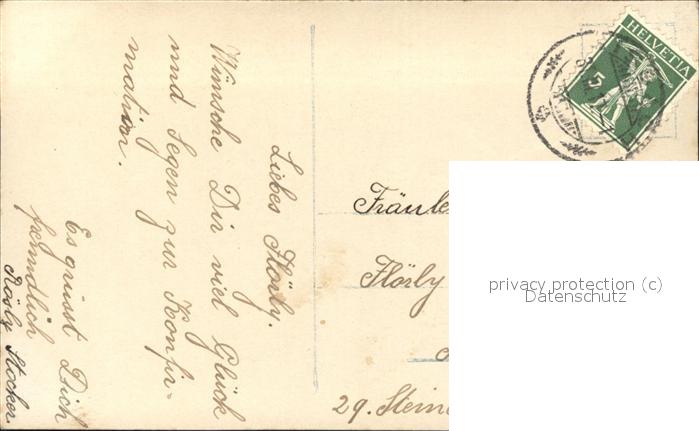 Liebes Flörly.
Wünsche Dir viel Glück
und Segen zur Konfir-
mation.
Es grüsst Dich
freundlich
Rösly Stocker
HELVETIA
5
Fräule
Flörly
29. Stein
privacy protection (c)
Datenschutz